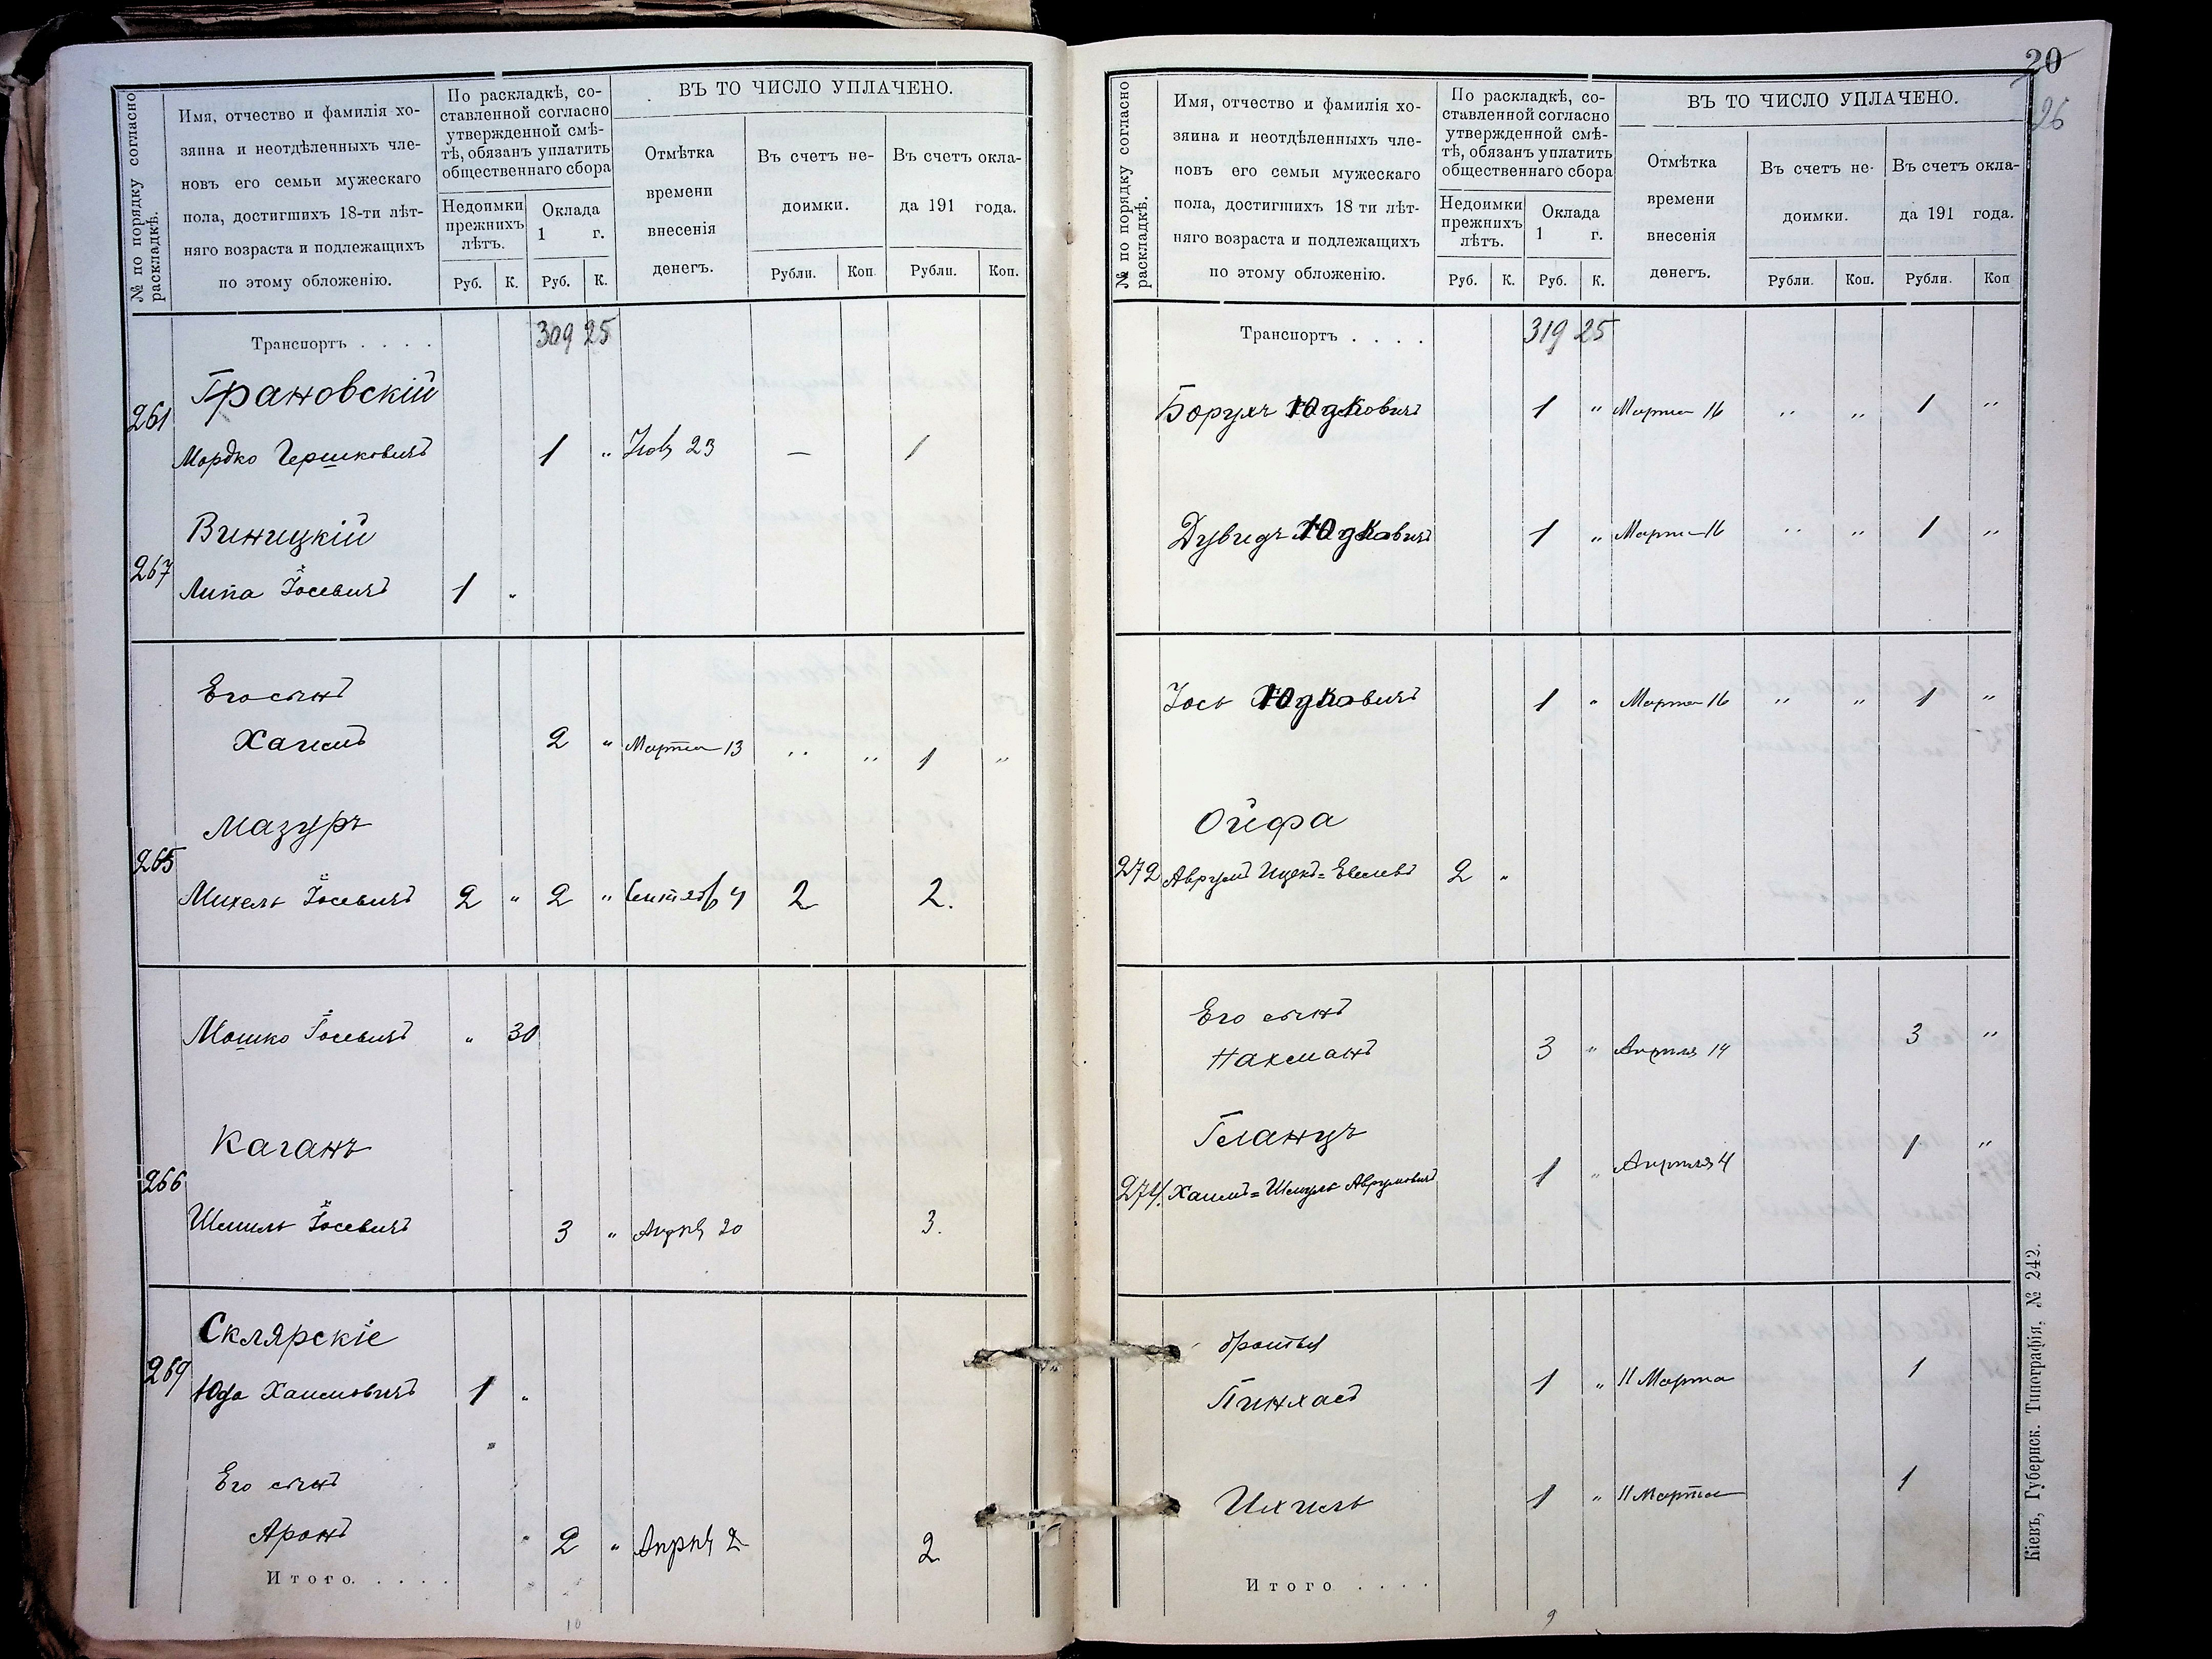 № по порядку согласно раскладкѣ.
Имя, отчество и фамилія хо-
зяина и неотдѣленныхъ чле-
новъ его семьи мужескаго
пола, достигшихъ 18-ти лѣт-
няго возраста и подлежащихъ
по этому обложенію.
По раскладкѣ, со-
ставленной согласно
утвержденной смѣ-
тѣ, обязанъ уплатить
общественнаго сбора
Недоимки
прежнихъ
лѣтъ.
Оклада
1 г.
Руб. К. Руб. К.
ВЪ ТО ЧИСЛО УПЛАЧЕНО.
Отмѣтка
времени
внесенія
денегъ.
Въ счетъ не-
доимки.
Въ счетъ окла-
да 191 года.
Рубли. Коп. Рубли. Коп.
Транспортъ . . . . 309 25
Грановскій
261
Мордко Гершковичъ 1 " Нояб 23 — 1
Виницкій
267
Липа Іосевичъ 1 "
Его сынъ
Хаимъ 2 " Марта 13 " " 1 "
Мазуръ
265
Михель Іосевичъ 2 " 2 " Сентяб 4 2 2.
Мошко Іосевичъ " 30
Каганъ
266
Шмиль Іосевичъ 3 " Апрѣ 20 3.
Склярскіе
269
Юда Хаимовичъ 1 "
Его сынъ
Аронъ 2 " Апрѣ 2 2
Итого. . . . .
10
20
26
№ по порядку согласно раскладкѣ.
Имя, отчество и фамилія хо-
зяина и неотдѣленныхъ чле-
новъ его семьи мужескаго
пола, достигшихъ 18 ти лѣт-
няго возраста и подлежащихъ
по этому обложенію.
По раскладкѣ, со-
ставленной согласно
утвержденной смѣ-
тѣ, обязанъ уплатить
общественнаго сбора
Недоимки
прежнихъ
лѣтъ.
Оклада
1 г.
Руб. К. Руб. К.
ВЪ ТО ЧИСЛО УПЛАЧЕНО.
Отмѣтка
времени
внесенія
денегъ.
Въ счетъ не-
доимки.
Въ счетъ окла-
да 191 года.
Рубли. Коп. Рубли. Коп
Транспортъ . . . . 319 25
Борухъ Юдковичъ 1 " Марта 16 " " 1 "
Дувидъ Юдковичъ 1 " Марта 16 " " 1 "
Іось Юдковичъ 1 " Марта 16 " " 1 "
Ойфа
272 Аврумъ Ицекъ=Евелевъ 2 "
Его сынъ
Нахманъ 3 " Апрѣля 14 3 "
Гланцъ
274. Хаимъ=Шмуль Аврумовичъ 1 " Апрѣля 4 1 "
братья
Пинхасъ 1 " 11 Марта 1
Ихиль 1 " 11 Марта 1
Итого . . . .
9
Кіевъ, Губернск. Типографія, № 242.